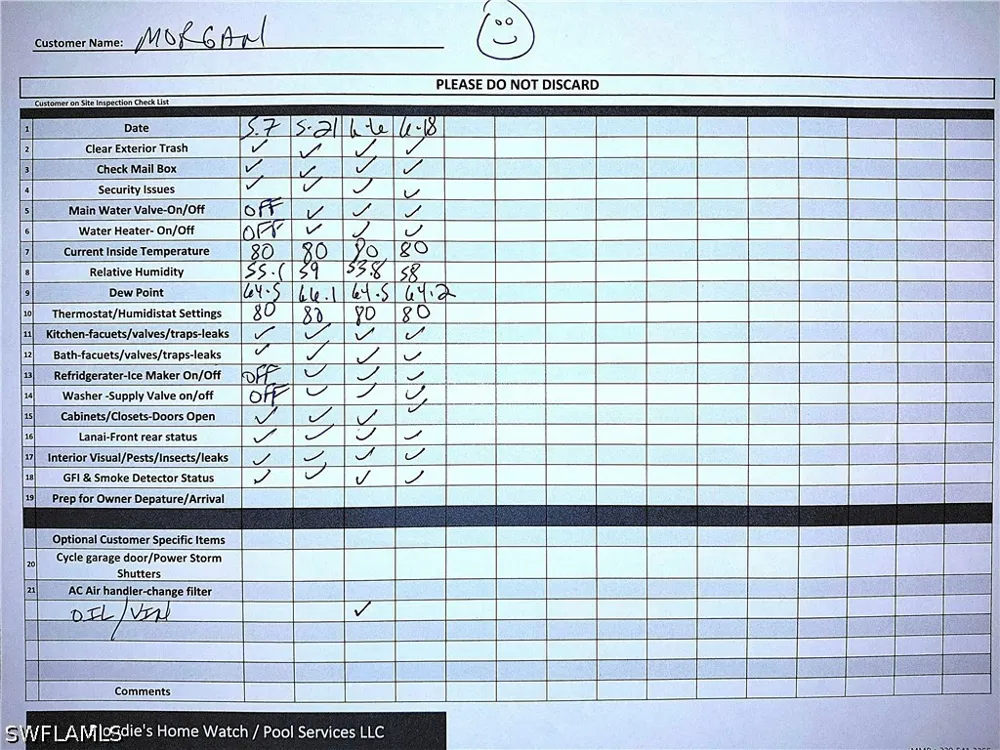 Customer Name: MORGAN
PLEASE DO NOT DISCARD
Customer on Site Inspection Check List
1 Date 5.7 5-21 6-6 6-18
2 Clear Exterior Trash ✓ ✓ ✓ ✓
3 Check Mail Box ✓ ✓ ✓ ✓
4 Security Issues ✓ ✓ ✓ ✓
5 Main Water Valve-On/Off OFF ✓ ✓ ✓
6 Water Heater- On/Off OFF ✓ ✓ ✓
7 Current Inside Temperature 80 80 80 80
8 Relative Humidity 55.1 59 53.8 58
9 Dew Point 64.5 66.1 64.5 64.2
10 Thermostat/Humidistat Settings 80 80 80 80
11 Kitchen-facuets/valves/traps-leaks ✓ ✓ ✓ ✓
12 Bath-facuets/valves/traps-leaks ✓ ✓ ✓ ✓
13 Refridgerater-Ice Maker On/Off OFF ✓ ✓ ✓
14 Washer -Supply Valve on/off OFF ✓ ✓ ✓
15 Cabinets/Closets-Doors Open ✓ ✓ ✓ ✓
16 Lanai-Front rear status ✓ ✓ ✓ ✓
17 Interior Visual/Pests/Insects/leaks ✓ ✓ ✓ ✓
18 GFI & Smoke Detector Status ✓ ✓ ✓ ✓
19 Prep for Owner Depature/Arrival
Optional Customer Specific Items
20 Cycle garage door/Power Storm
Shutters
21 AC Air handler-change filter
OIL/VIN ✓
Comments
SWFLAMLS
Home Watch / Pool Services LLC